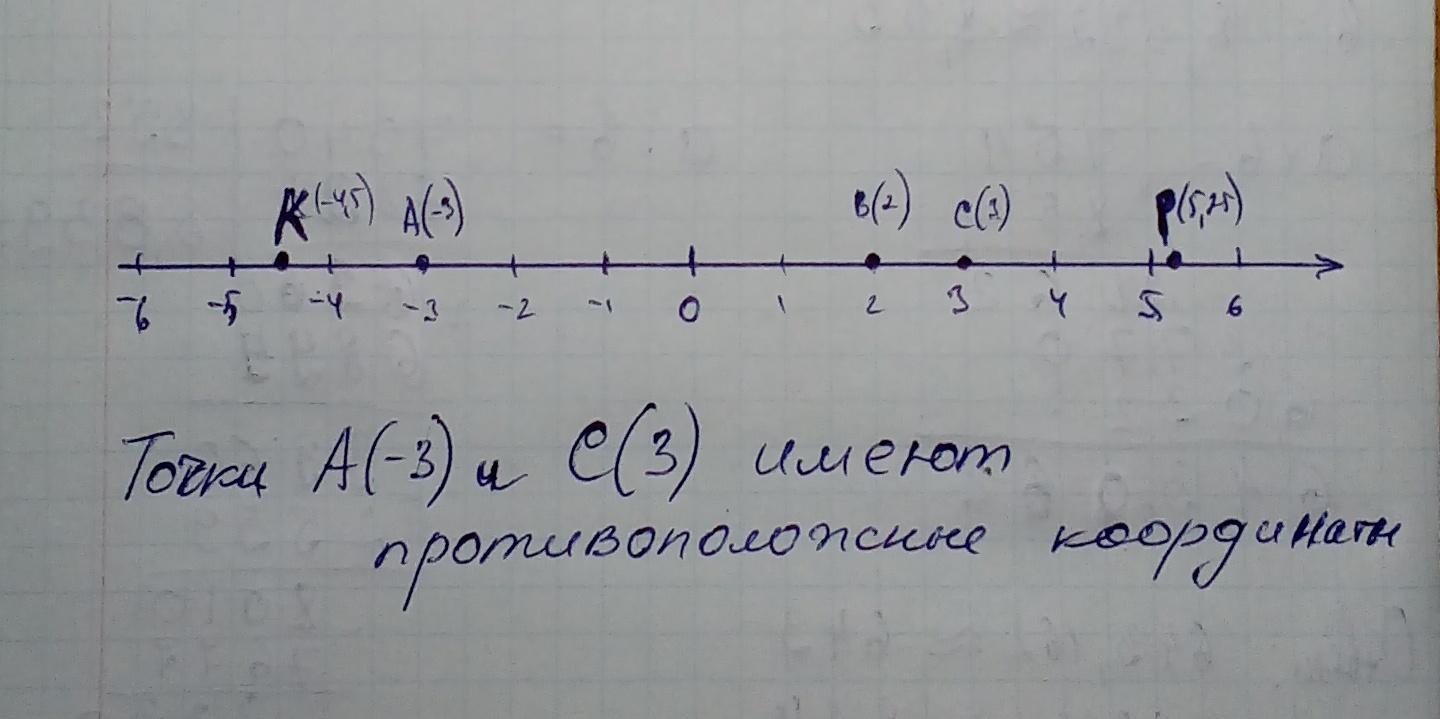 К(-4,5) А(-3) В(2) С(3) Р(5,25)
-6 -5 -4 -3 -2 -1 0 1 2 3 4 5 6
Точки А(-3) и С(3) имеют
противоположные координаты